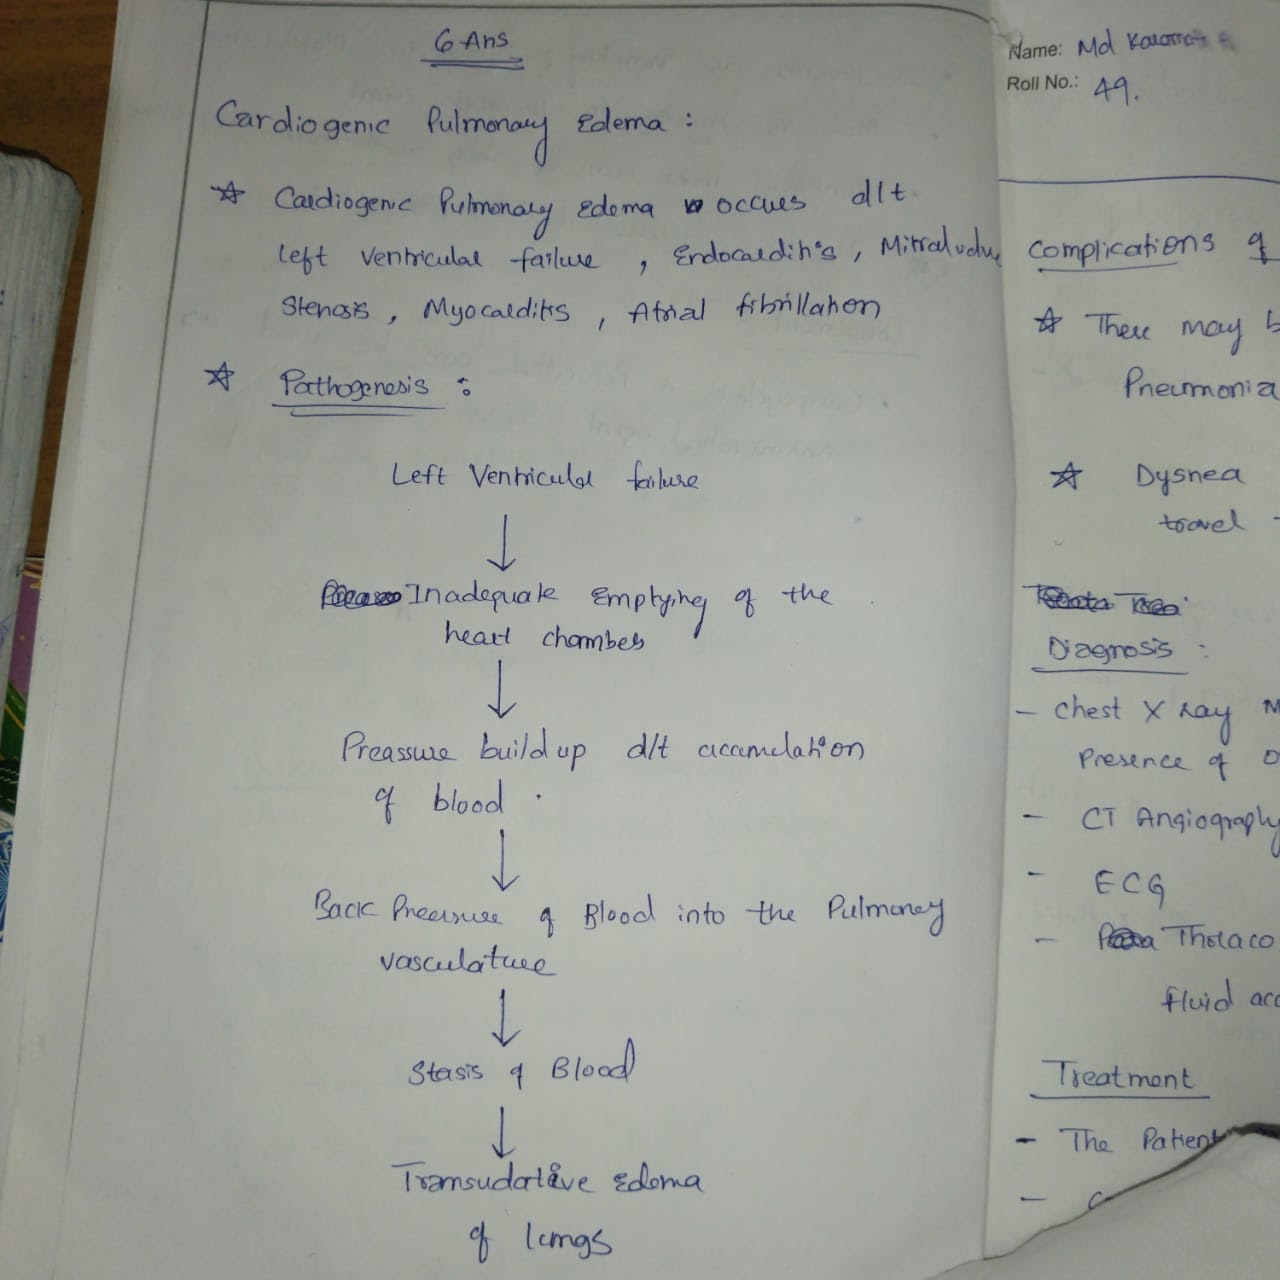 6 Ans
Cardiogenic Pulmonary Edema :
☆ Cardiogenic Pulmonary Edema occurs d/t
left ventricular failure , Endocarditis , Mitral
Stenosis , Myocarditis , Atrial fibrillation
☆ Pathogenesis :
Left Ventricular failure
↓
Inadequate Emptying of the
heart chambers
↓
Preassure build up d/t accumulation
of blood .
↓
Back Pressure of Blood into the Pulmonary
vasculature
↓
Stasis of Blood
↓
Transudative Edema
of lungs
Name: Md
Roll No.: 49.
Complications of
☆ There may b
Pneumonia
☆ Dysnea
travel
Diagnosis :
- Chest X ray M
Presence of
- CT Angiography
- ECG
- Thoraco
fluid acc
Treatment
- The Patient
-